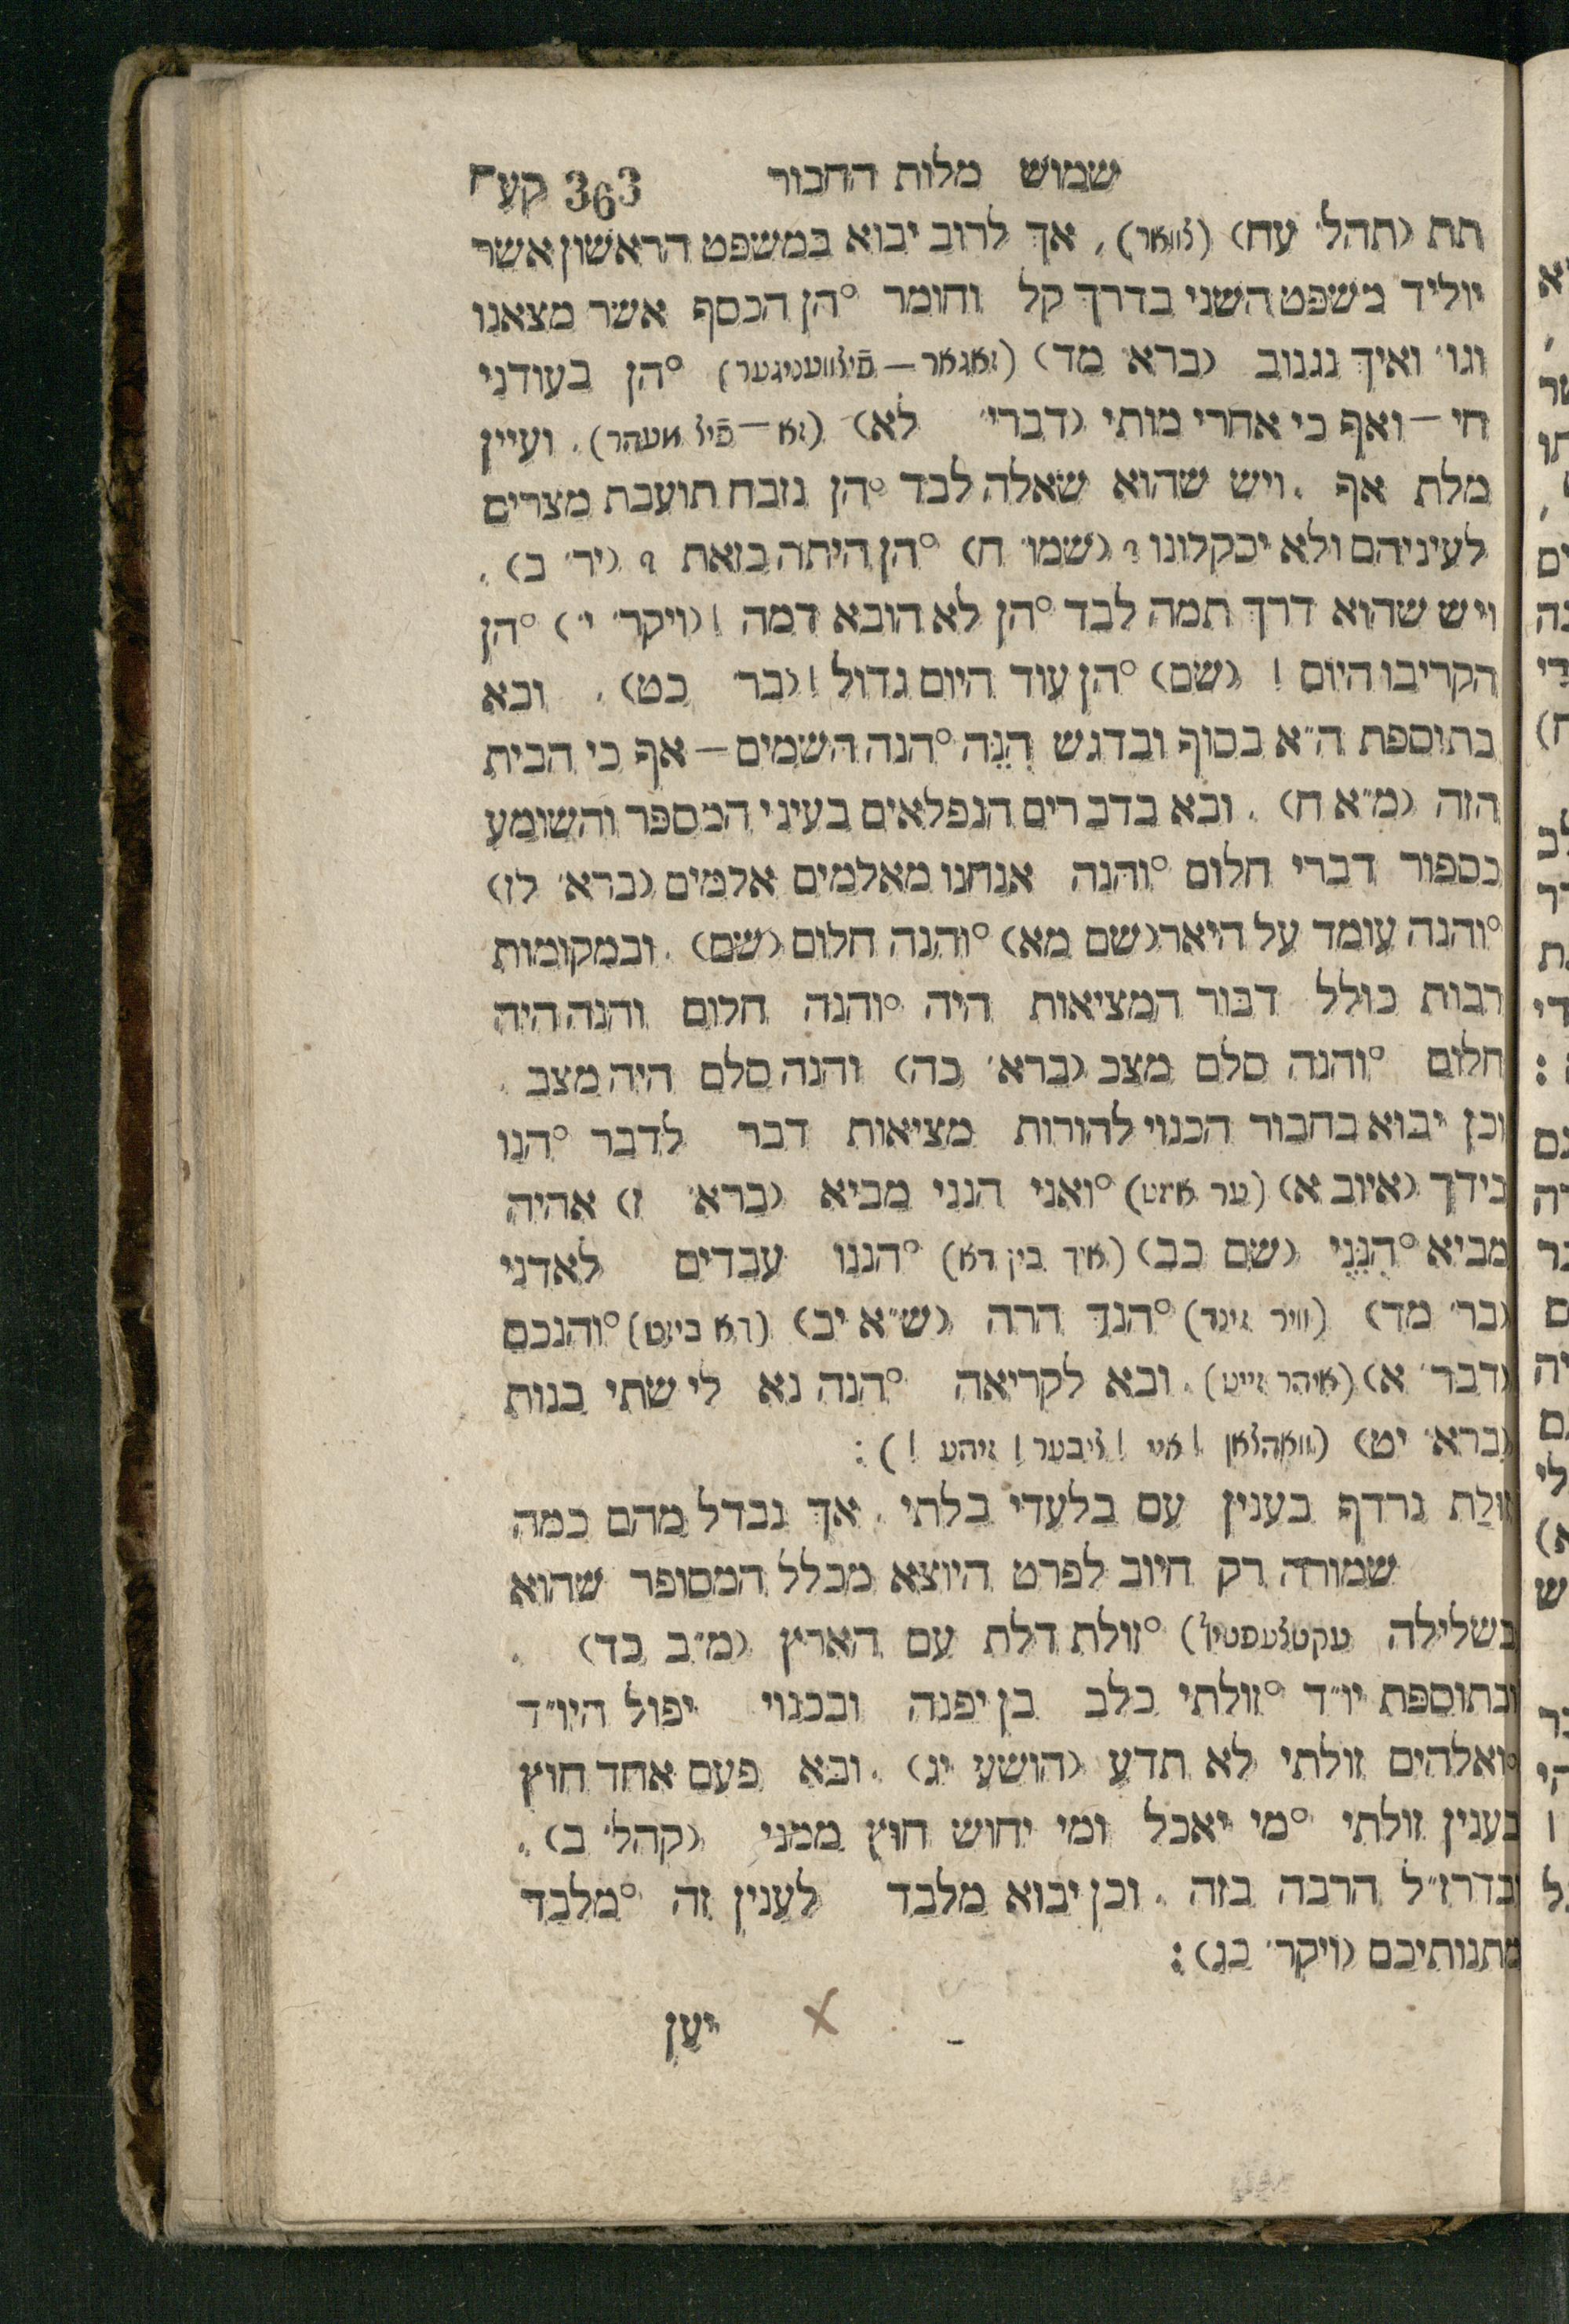 שמוש מלות החבור 363 קעח
תת (תהל׳ עח) (צוואר), אך לרוב יבוא במשפט הראשון אשר
יוליד משפט השני בדרך קל וחומר °הן הכסף אשר מצאנו
וגו׳ ואיך נגנוב (ברא׳ מד) (זאגאר — פֿילוועניגער) °הן בעודני
חי — ואף כי אחרי מותי (דברי׳ לא) (זא — פֿיל מעהר). ועיין
מלת אף . ויש שהוא שאלה לבד °הן נזבח תועבת מצרים
לעיניהם ולא יסקלונו ? (שמו׳ ח) °הן היתה כזאת ? (יר׳ ב) .
ויש שהוא דרך תמה לבד °הן לא הובא דמה ! (ויקר׳ י׳) °הן
הקריבו היום ! (שם) °הן עוד היום גדול ! (בר׳ כט) . ובא
בתוספת ה״א בסוף ובדגש הִנֵּה °הנה השמים — אף כי הבית
הזה (מ״א ח) . ובא בדברים הנפלאים בעיני המספר והשומע
כספור דברי חלום °והנה אנחנו מאלמים אלמים (ברא׳ לז)
°והנה עומד על היאר (שם מא) °והנה חלום (שם) . ובמקומות
רבות כולל דבור המציאות היה °והנה חלום והנה היה
חלום °והנה סלם מצב (ברא׳ כה) והנה סלם היה מצב .
וכן יבוא בחבור הכנוי להורות מציאות דבר לדבר °הנו
בידך (איוב א) (ער איזט) °ואני הנני מביא (ברא׳ ז) אהיה
מביא °הִנֵּנִי (שם כב) (איך בין דא) °הננו עבדים לאדני
(בר׳ מד) (וויר זינד) °הנך הרה (ש״א יב) (דא ביזט) °והנכם
(דבר׳ א) (איהר זייט). ובא לקריאה °הנה נא לי שתי בנות
(ברא׳ יט) (וואהלאן ! אי ! ליבער ! זיהע !) :
זולַת נרדף בענין עם בלעדי בלתי . אך נבדל מהם במה
שמורה רק חיוב לפרט היוצא מכלל המסופר שהוא
בשלילה °זולת דלת עם הארץ (מ״ב כד) .
ובתוספת יו״ד °זולתי כלב בן יפנה ובכנוי יפול היו״ד
°ואלהים זולתי לא תדע (הושע יג) . ובא פעם אחד חוץ
בענין זולתי °מי יאכל ומי יחוש חוץ ממני (קהל׳ ב) .
ובדרז״ל הרבה בזה . וכן יבוא מלבד לענין זה °מלבד
מתנותיכם (ויקר׳ כג) :
יען